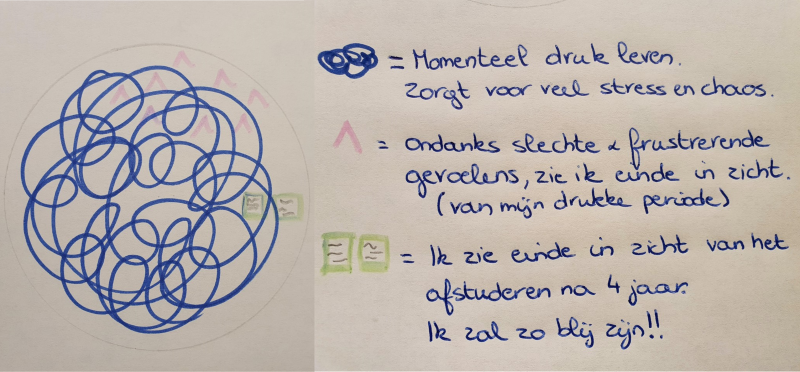 = Momenteel druk leven.
Zorgt voor veel stress en chaos.
= Ondanks slechte & frustrerende
gevoelens, zie ik einde in zicht.
(van mijn drukke periode)
= Ik zie einde in zicht van het
afstuderen na 4 jaar.
Ik zal zo blij zijn!!